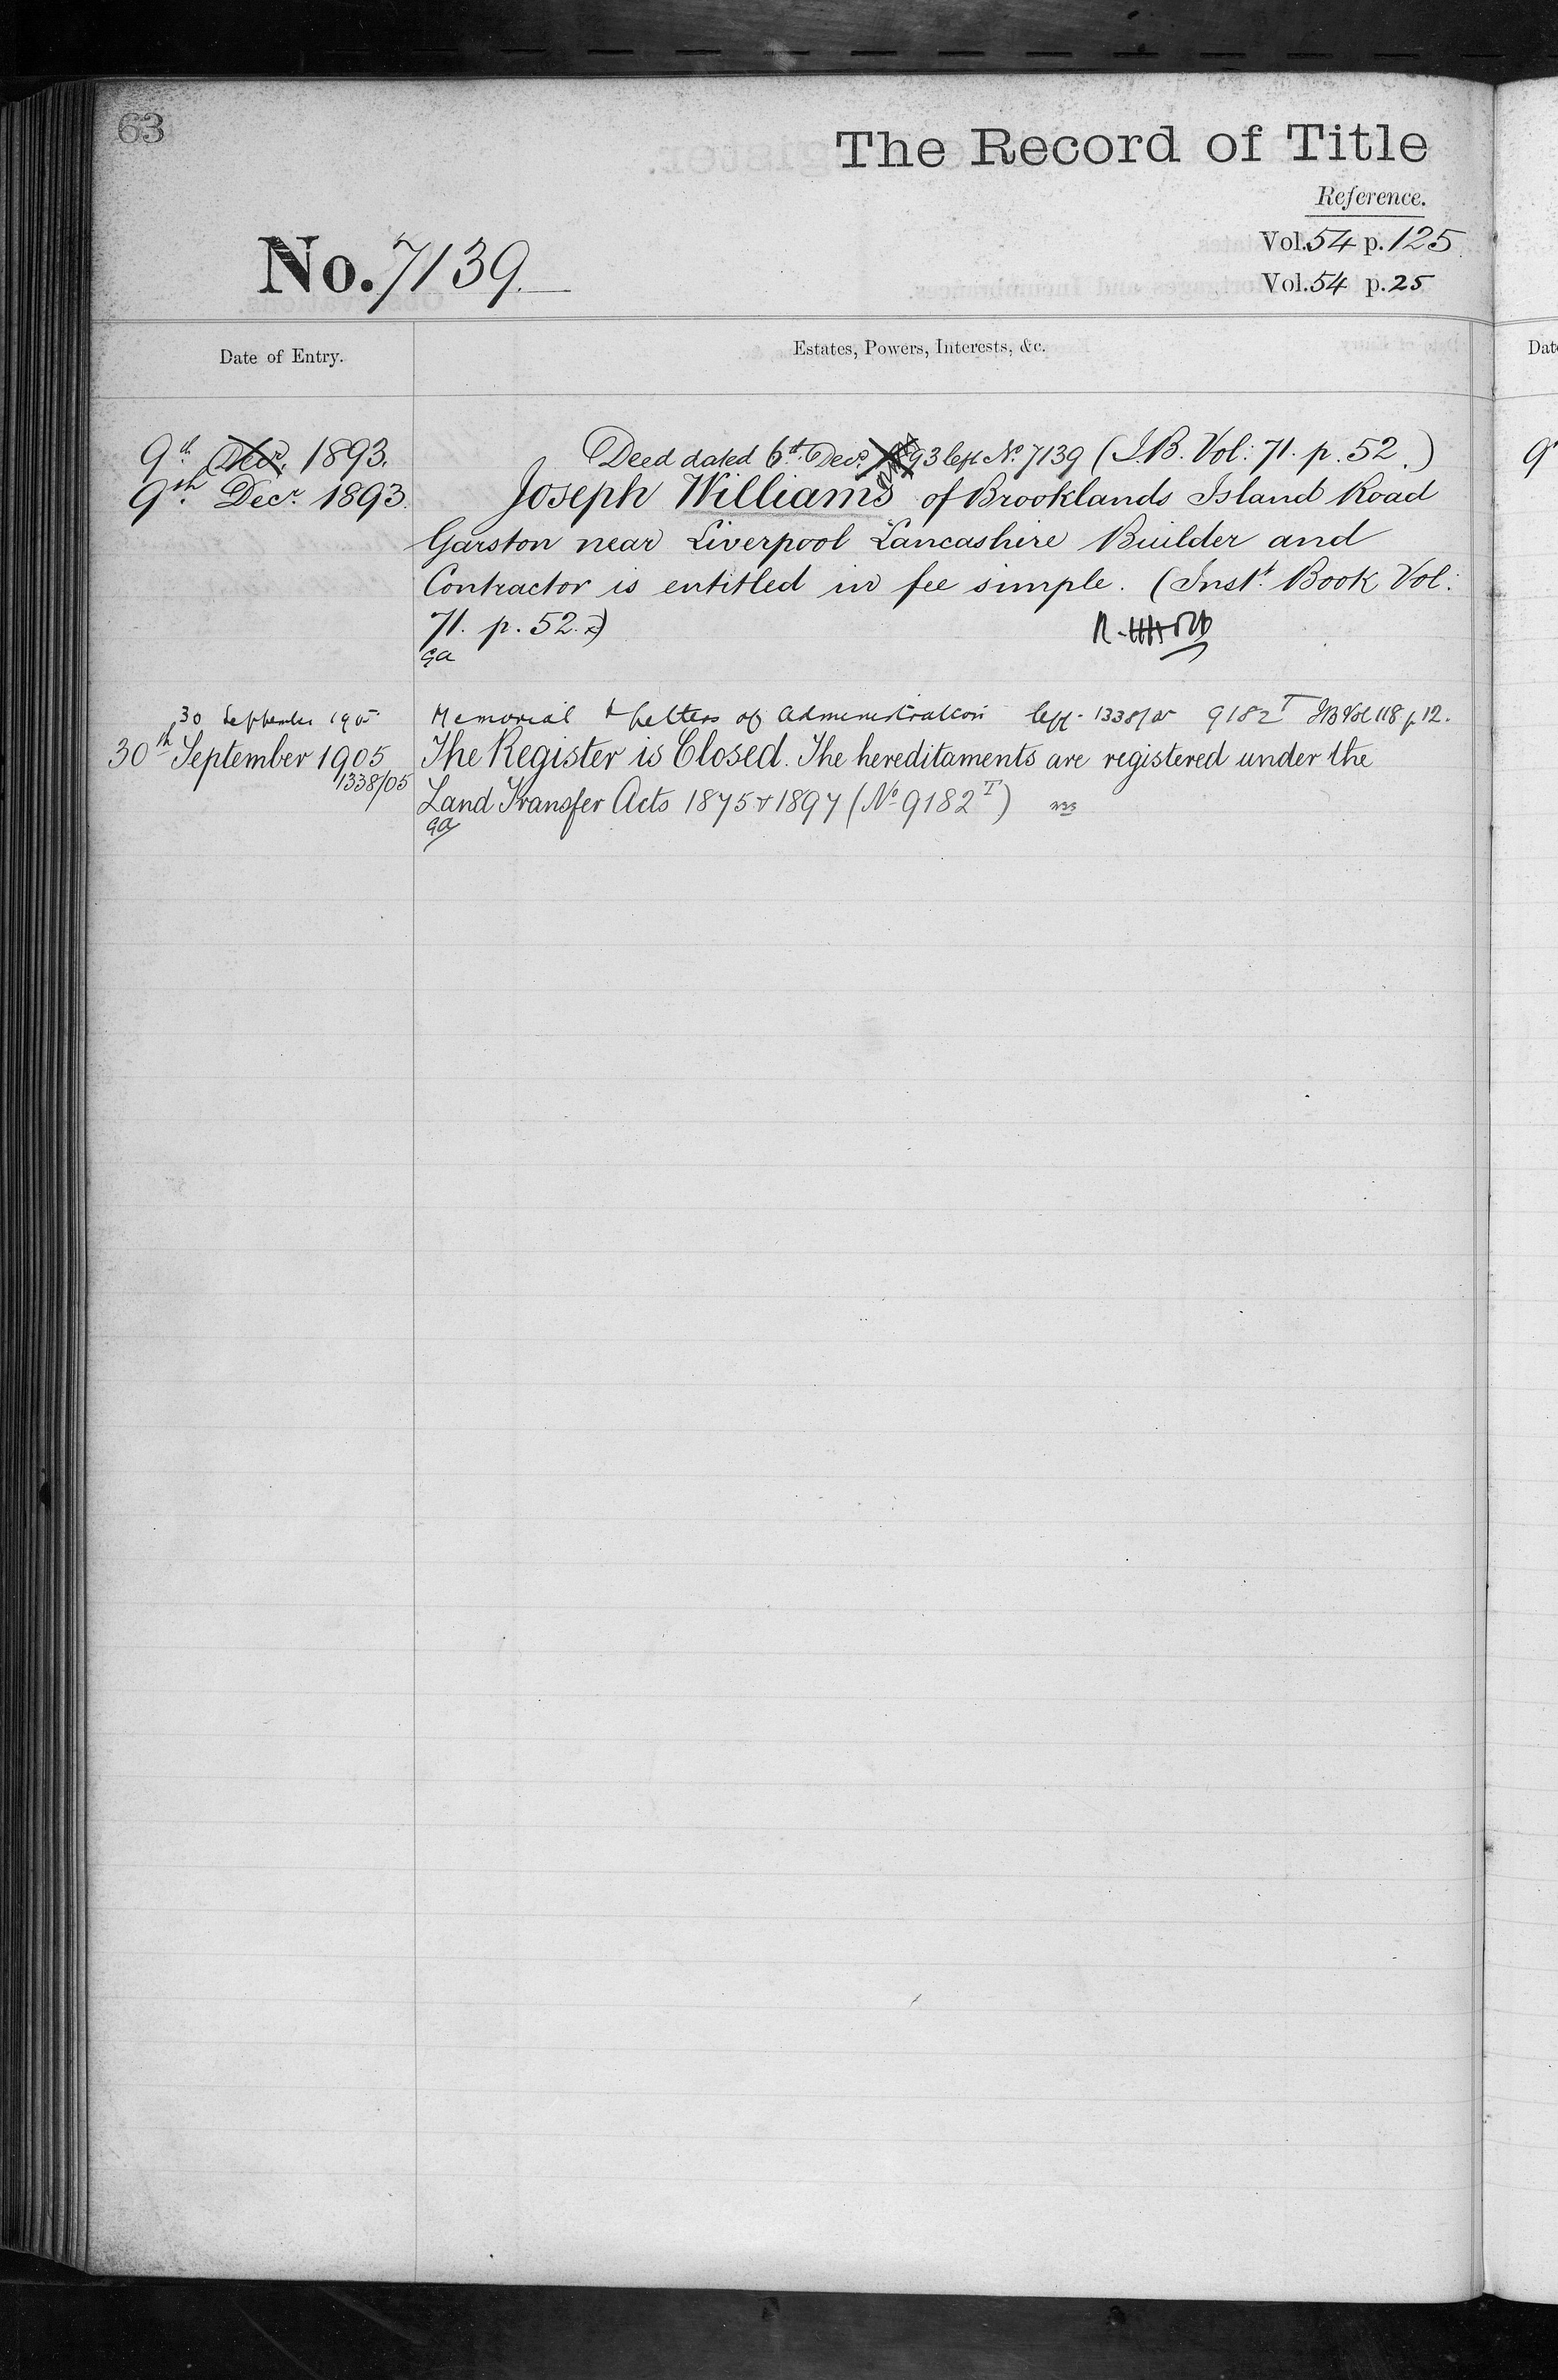 63
The Record of Title
Reference.
Vol. 54 p. 125
No. 7139.
Vol. 54 p. 25
Date of Entry.
Estates, Powers, Interests, &c.
Dat
9th Decr. 1893.
Deed dated 6th Decr. 1893 left No. 7139 (I.B. Vol: 71. p. 52.)
9th Decr 1893.
Joseph Williams of Brooklands Island Road
Garston near Liverpool Lancashire Builder and
Contractor is entitled in fee simple. (Instt. Book Vol:
71. p. 52.)
GA
30 September 1905
Memorial & Letters of Administration left 1338/05 9182 I IB Vol 118 p 12.
30th September 1905
The Register is Closed. The hereditaments are registered under the
1338/05
Land Transfer Acts 1875 & 1897 (No 9182 I)
GA